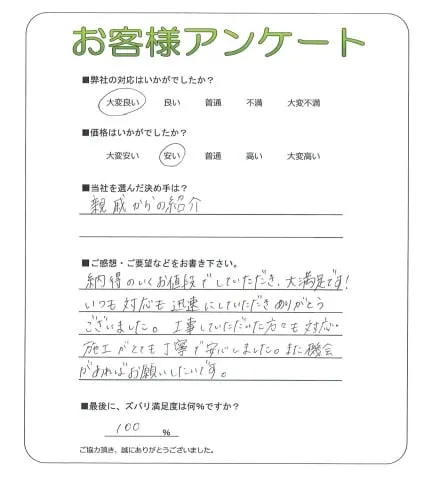 お客様アンケート
■弊社の対応はいかがでしたか?
大変良い 良い 普通 不満 大変不満
■価格はいかがでしたか?
大変安い 安い 普通 高い 大変高い
■当社を選んだ決め手は?
親戚からの紹介
■ご感想・ご要望などをお書き下さい。
納得のいくお値段でしていただき、大満足です!
いつも対応も迅速にしていただきありがとう
ございました。工事していただいた方々も対応・
施工がとても丁寧で安心しました。また機会
があればお願いしたいです。
■最後に、ズバリ満足度は何%ですか?
100 %
ご協力頂き、誠にありがとうございました。